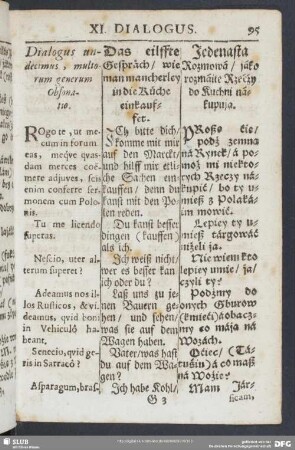 XI. DIALOGUS.
95
Dialogus un-
decimus, multo-
rum generum
Obsona-
tio.
ROgo te, ut me-
cum in forum
eas, meque quas-
dam merces coë-
mere adjuves, sci-
enim conserte ser-
monem cum Polo-
nis.
Tu me licendo
superas.
Nescio, uter al-
terum superet?
Adeamus nos il-
los Rusticos, & vi-
deamus, quid boni
in Vehiculô ha-
beant.
Senecio, quid ge-
ris in Sarracô?
Asparagum, bras-
Das eilffte
Gespräch/ wie
man mancherley
in die Küche
einkauf-
fet.
ICh bitte dich/
komme mit mir
auf den Marckt/
und hilff mir etli-
che Sachen ein-
kauffen/ denn du
kanst mit den Po-
len reden.
Du kanst besser
dingen (kauffen)
als ich.
Ich weiß nicht/
wer es besser kan/
ich oder du?
Laß uns zu je-
nen Bauern ge-
hen/ und sehen/
was sie auf dem
Wagen haben.
Vater/ was hast
du auf dem Wa-
gen?
Ich habe Kohl/
G 3
Jedenasta
Rozmowá/ jáko
rozmáite Rzeczy
do Kuchni ná-
kupują.
PRoßę cie/
podź zemną
ná Rynek/ á po-
moż mi niektor-
ych Rzeczy ná-
kupić/ bo ty u-
mieß z Polaká-
mi mowić.
Lepiey ty u-
mieß tárgowáć
niżeli ja.
Nie wiem kto
lepiey umie/ ja/
czyli ty?
Podźmy do
onych Gburow
(kmieći) á obacz-
my co máją ná
Wozách.
Oćiec/ (Tá-
tusiu) á co maß
ná Woźie?
Mam Jár-
SLUB
Wir führen Wissen.